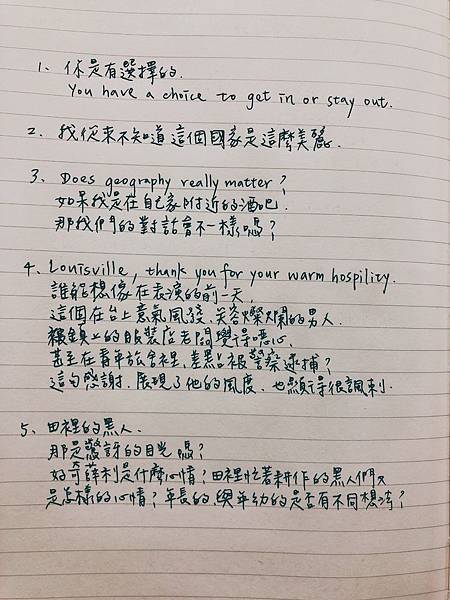 1、你是有選擇的.
You have a choice to get in or stay out.
2、我從來不知道這個國家是這麼美麗.
3、Does geography really matter?
如果我是在自己家附近的酒吧.
那我們的對話會不一樣嗎?
4、Louisville, thank you for your warm hospility.
誰能想像在表演的前一天,
這個在台上意氣風發、笑容燦爛的男人.
被鎮上的服裝店老闆覺得噁心,
甚至在青年旅舍裡,差點被警察逮捕?
這句感謝.展現了他的風度.也顯得很諷刺.
5、田裡的黑人.
那是驚訝的目光嗎?
好奇薛利是什麼心情?田裡忙著耕作的黑人們又
是怎樣的心情?年長的與年幼的是否有不同想法?